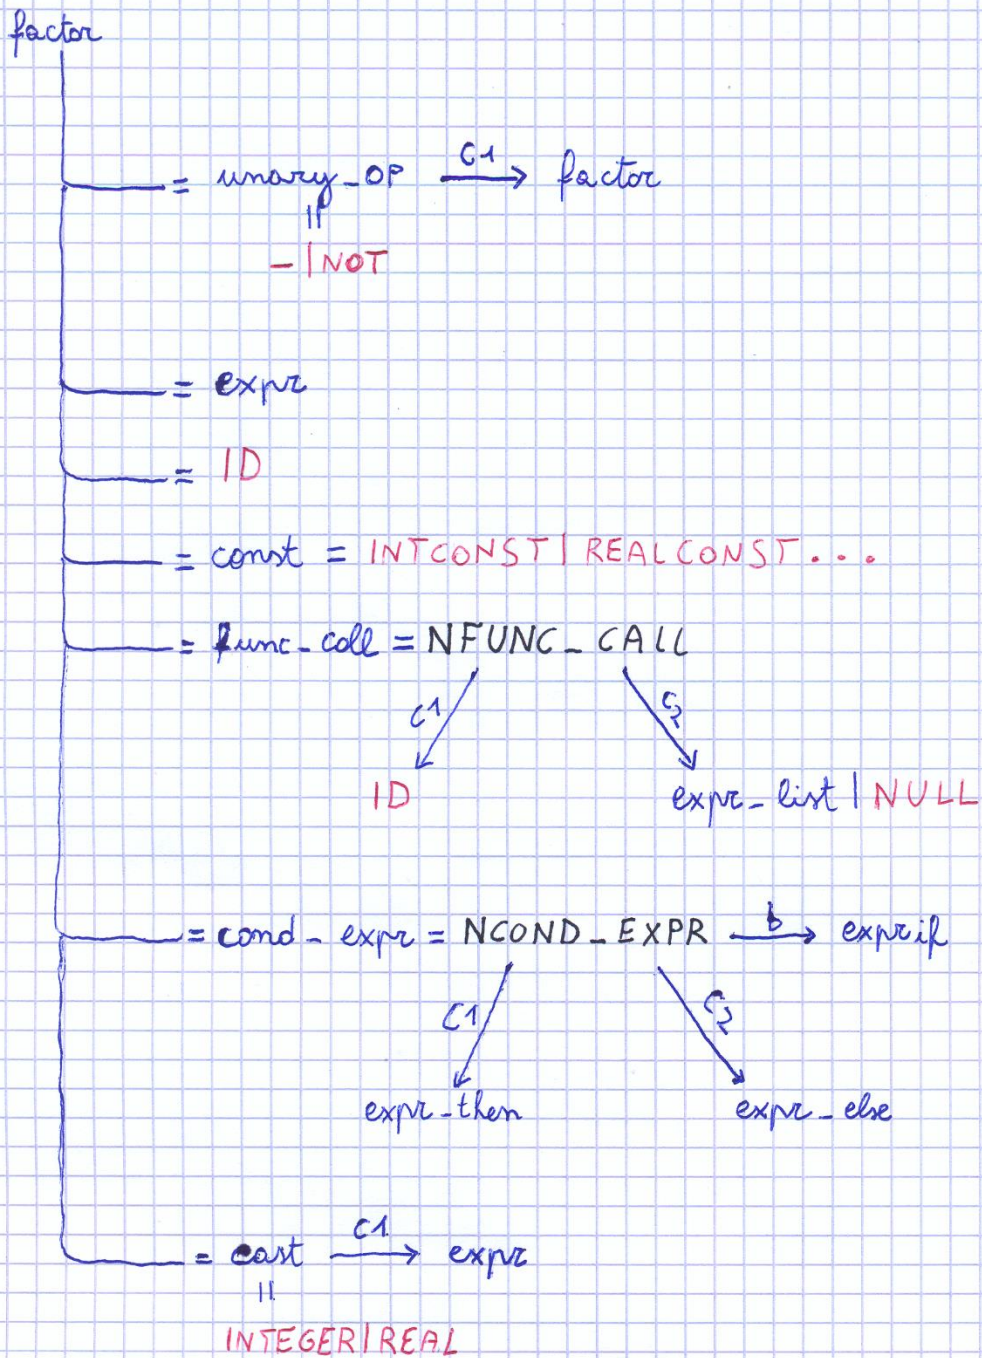 factor
= unary_OP C1 factor
=
- | NOT
= expr
= ID
= const = INTCONST | REALCONST...
= func_call = NFUNC_CALL
C1 C2
ID expr_list | NULL
= cond_expr = NCOND_EXPR b exprif
C1 C2
expr_then expr_else
= cast C1 expr
=
INTEGER | REAL